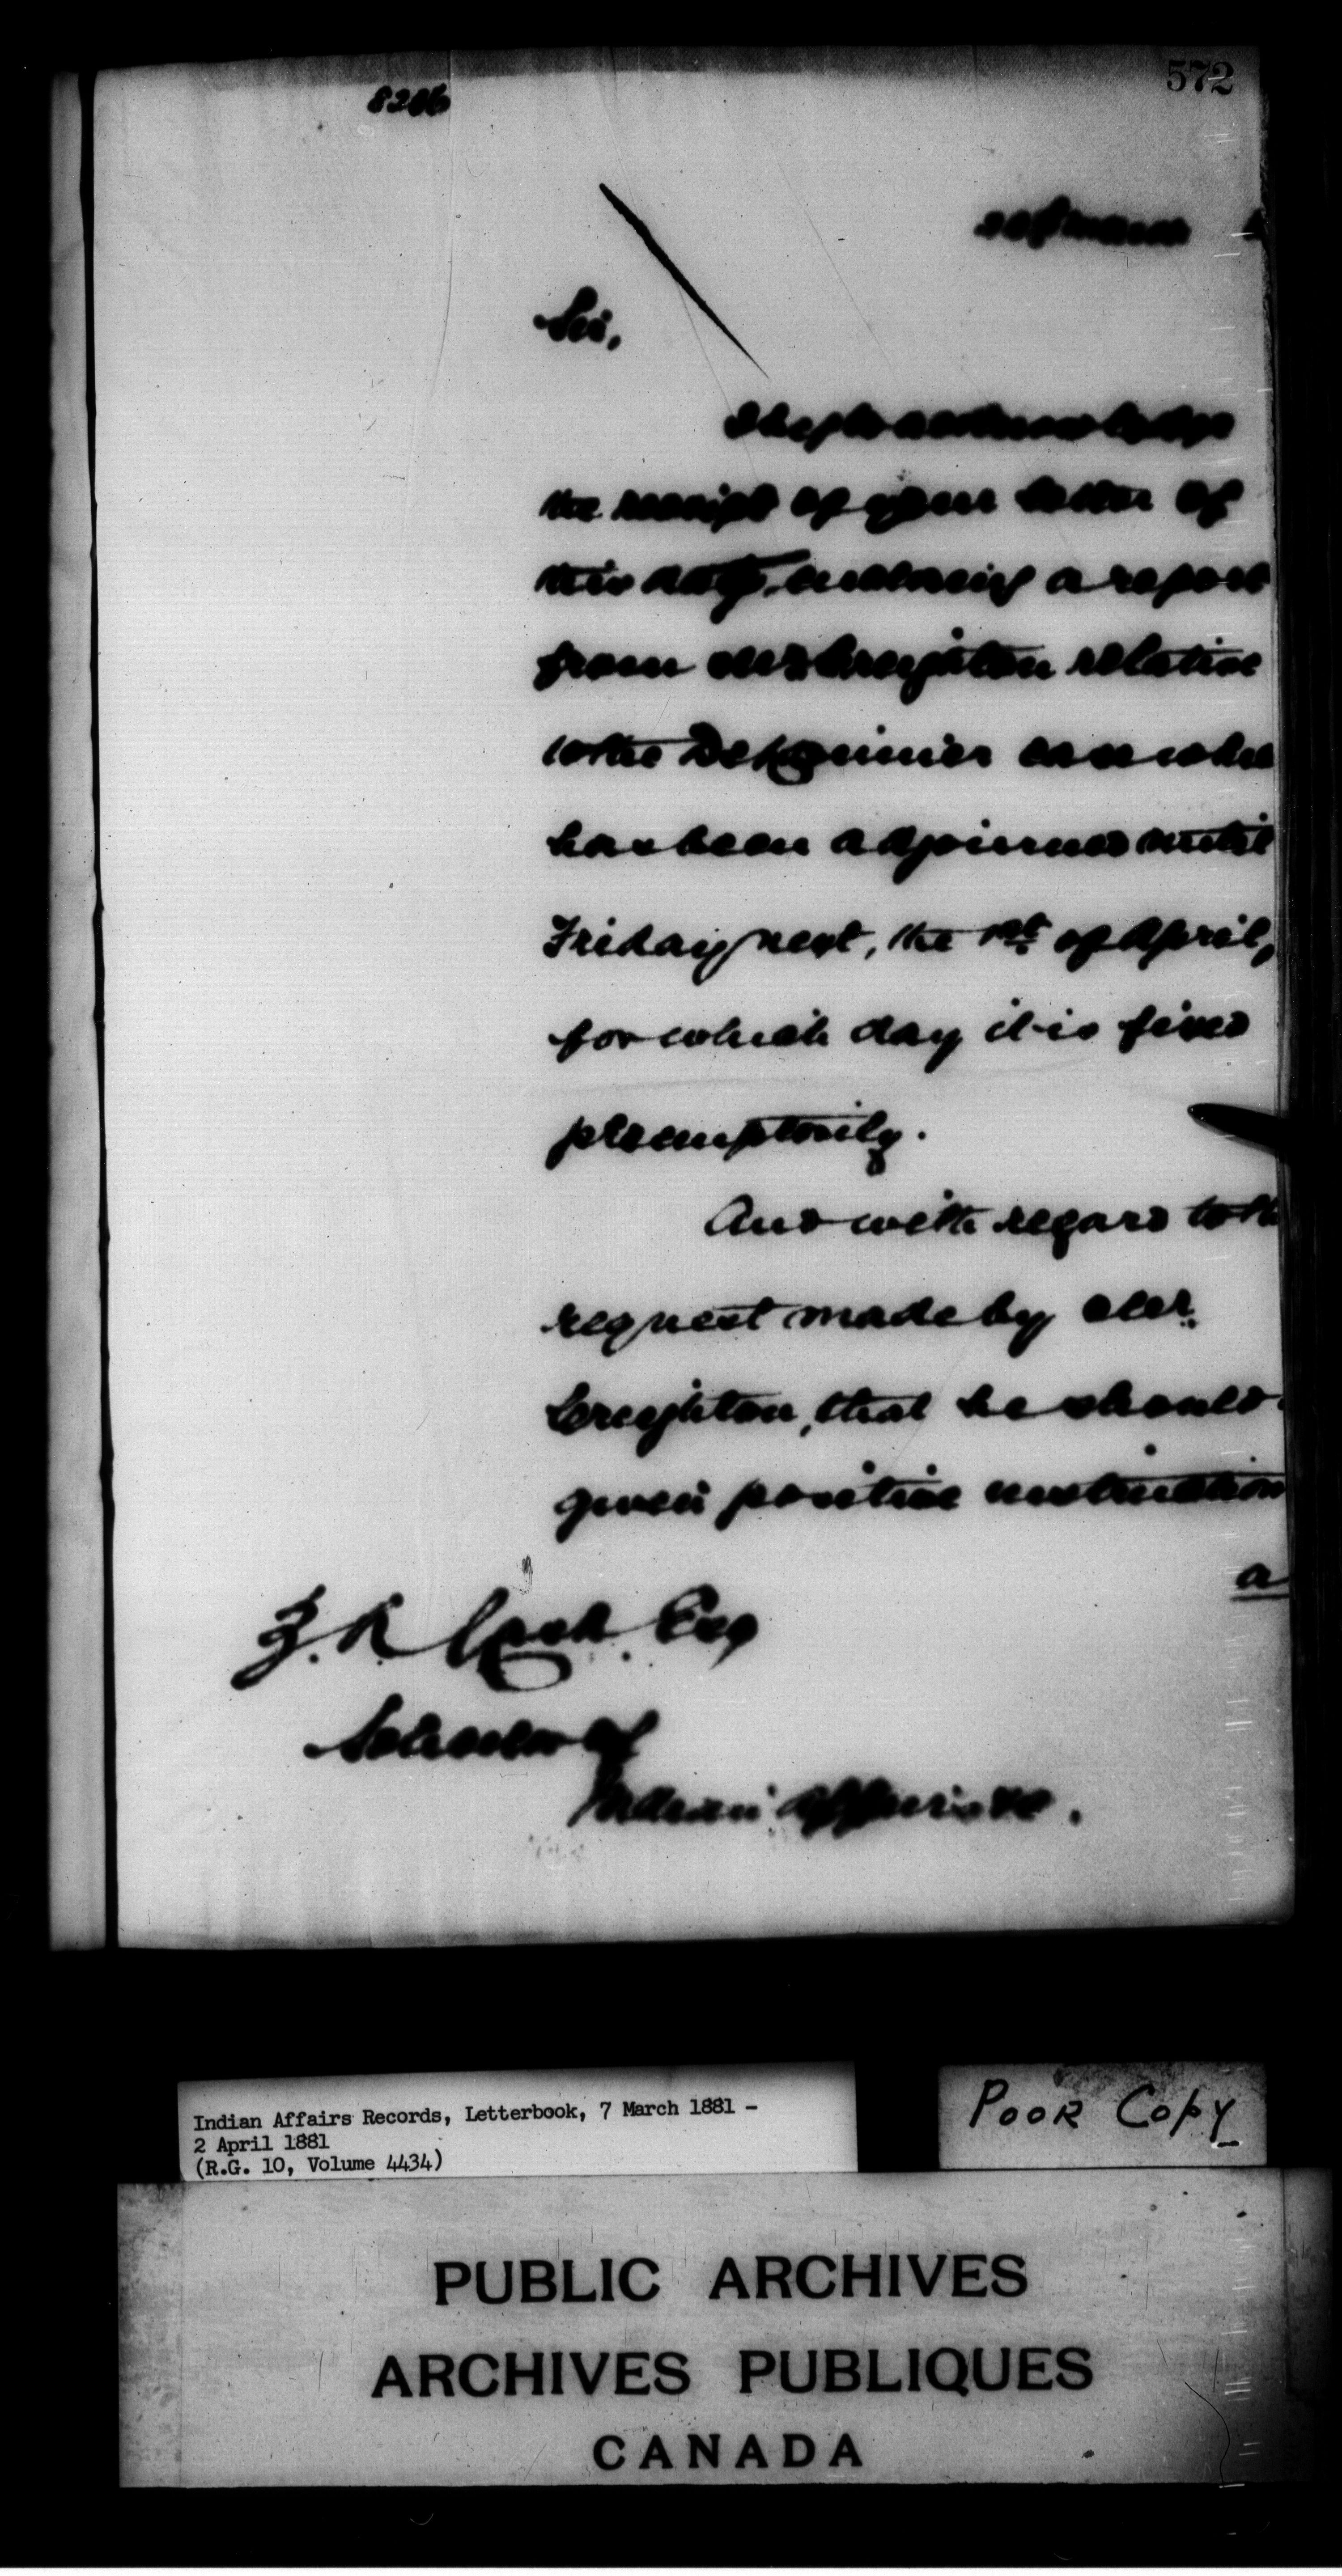 572
8206
March
Sir,
I beg to acknowledge
the receipt of your letter of
this day, enclosing a report
from Mr Creighton relative
to the case which
has been adjourned until
Friday next, the 1st of April,
for which day it is fixed
premptorily.
And with regard to th
request made by Mr.
Creighton, that he should
given positive instruction
a
Z. A. Lash. Esq
Indian Affairs
Indian Affairs Records, Letterbook, 7 March 1881 -
2 April 1881
(R.G. 10, Volume 4434)
POOR COPY
PUBLIC ARCHIVES
ARCHIVES PUBLIQUES
CANADA